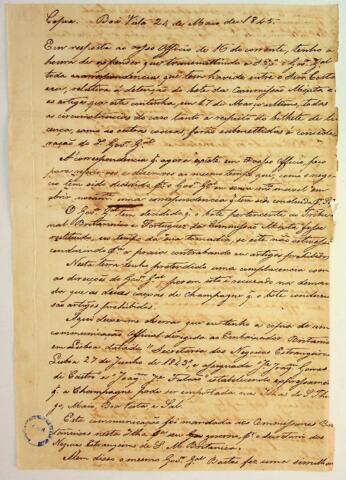 Copia. Boa Vista 24 de Maio de 1845.
Em resposta ao vosso Officio de 16 do corrente, tenho a
honra de responder que transmittindo a S. Ex.ª o Gov.or G.al
toda a correspondencia que tem havido entre o Dir.
relativa á detenção do bote da Commissão Mixta e
os artigos que este continha, em 17 de Março ultimo, todas
as circunstancias do caso tanto a respeito do bilhete de li-
cença, como as outras cousas forão submettidas á conside-
ração do d.º Gov.or G.al
A correspondencia q. agora existe em vosso Officio, peço
para e dizer-vos ao mesmo tempo que, como o nego-
cio tem sido deduzido p. o Gov.or G.al eu
abrir novam.te uma correspondencia q. tem sido concluida p. S. Ex.ª
O Gov.or G.al tem decidido q. o bote pertencente ao Tribu-
nal Britannico e Portuguez da Commissão Mixta fosse
restituido, ao tempo da sua tomadia, se este não estives
conduzindo p.ª a praia contrabando ou artigos prohibidos.
Nesta terra tenho pretendido uma complacencia com
as direcções do Gov.or G.al, porem isto é recusado na deman-
da que as duas caixas de Champagne q. o bote conduzia
são artigos prohibidos.
Aqui devo me observar que eu tenho a copia de um
communicação Official dirigida ao Embaixador Britanni
em Lisboa datada da Secretaria dos Negocios Estrangeiros
Lisboa 27 de Junho de 1843, e assignado Joaq. Gomes
de Castro e Joaq. J.e Falcão estabelecendo expressamente
q. a Champagne pode ser importada nas Ilhas de S. Thia-
go, Maio, Boa Vista, e Sal.
Esta communicação foi mandada aos Commissarios Bri-
tannicos nesta Ilha p. seu governo, p. o Secretario dos
Negocios Estrangeiros de S. M. Britanica.
Alem disso o mesmo Gov.or G.al Bastos fez uma similhan